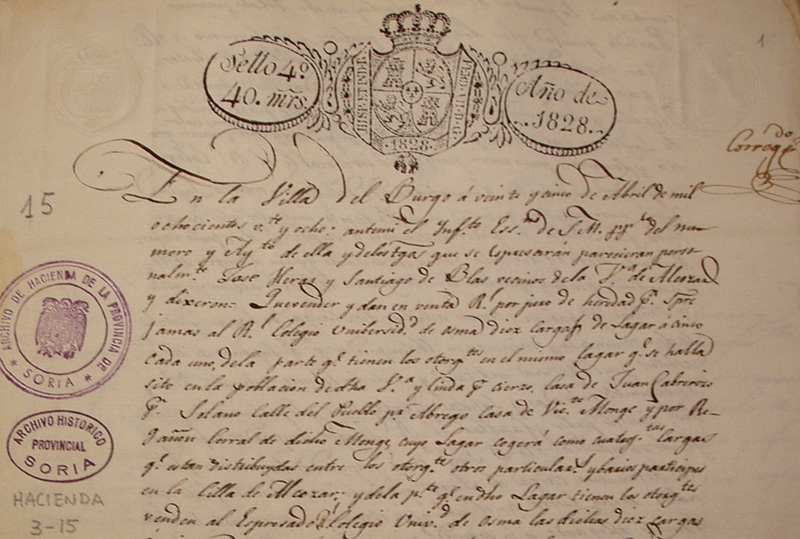 1
Sello 4º
40. mrs.
HISP. ET IND. R.
1828
Año de
1828.
Corregdo
15
En la Villa del Burgo á veinte y cinco de Abril de mil
ochocientos v.te y ocho: antemi el Inf.to Ess.no de S. M. pp.co del nu-
mero y Ay.to de ella y delos tgos que se espresarán parecieron perso
nalm.te Jose Heras y Santiago de Blas vecinos dela V.a de Alcozar
y dixeron: Quevenden y dan en venta R.l por juro de heredad p.a spre
jamas al R.l Colegio Unibersid.d de osma diez cargas de Lagar á cinco
cada uno, dela parte q.e tienen los otorg.tes en el mismo lagar q.e se halla
sito en la poblacion de dha V.a y linda p.r cierzo, casa de Juan Cabrerizo
p.r Solano Calle del Pueblo p.r Abrego casa de Vic.te Monge y por Re-
gañon Corral de dicho Monge, cuyo Lagar cogerá como cargas
q.e estan distribuydas entre los otorg.tes otros particular.s y barios participes
en la Villa de Alcozar; y dela p.te q.e en dho Lagar tienen los otorg.tes
venden al Espresado R.l Colegio Univ.d de osma las dichas diez cargas
ARCHIVO DE HACIENDA DE LA PROVINCIA DE
* SORIA *
ARCHIVO HISTORICO
PROVINCIAL
SORIA
HACIENDA
3-15